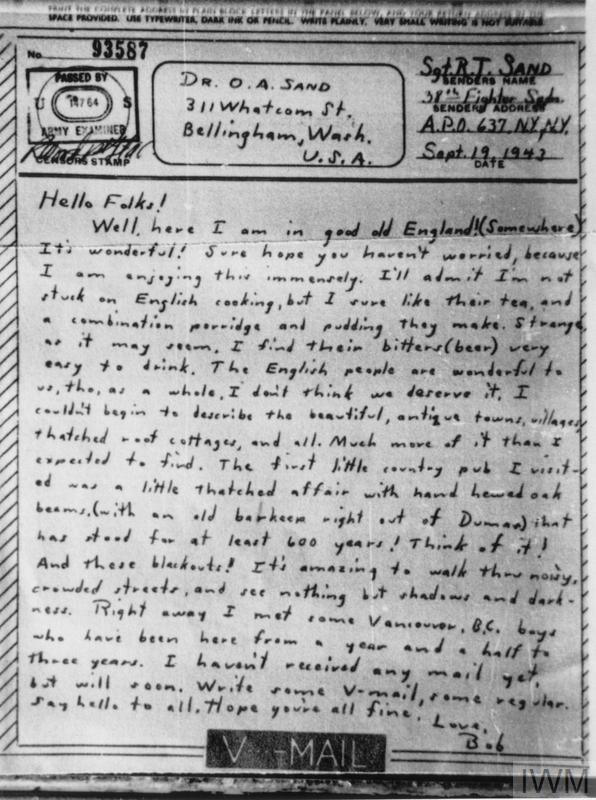 PRINT THE COMPLETE ADDRESS IN PLAIN BLOCK LETTERS IN THE PANEL BELOW, AND YOUR RETURN ADDRESS IN THE
SPACE PROVIDED. USE TYPEWRITER, DARK INK OR PENCIL. WRITE PLAINLY. VERY SMALL WRITING IS NOT SUITABLE.
No. 93587
PASSED BY
U S
ARMY EXAMINER
CENSOR'S STAMP
DR. O.A. SAND
311 Whatcom St.
Bellingham, Wash.
U.S.A.
Sgt. R.T. SAND
SENDER'S NAME
38th Fighter Sqdn.
SENDER'S ADDRESS
A.P.O. 637, N.Y., N.Y.
Sept. 19, 1943
DATE
Hello Folks!
Well, here I am in good old England! (Somewhere)
It's wonderful! Sure hope you haven't worried, because
I am enjoying this immensely. I'll admit I'm not
stuck on English cooking, but I sure like their tea, and
a combination porridge and pudding they make. Strange
as it may seem, I find their bitters (beer) very
easy to drink. The English people are wonderful to
us, tho, as a whole, I don't think we deserve it. I
couldn't begin to describe the beautiful, antique towns, villages,
thatched roof cottages, and all. Much more of it than I
expected to find. The first little country pub I visit-
ed was a little thatched affair with hand hewed oak
beams, (with an old barkeep right out of Dumas) that
has stood for at least 600 years! Think of it!
And these blackouts! It's amazing to walk thru noisy,
crowded streets, and see nothing but shadows and dark-
ness. Right away I met some Vancouver, B.C. boys
who have been here from a year and a half to
three years. I haven't received any mail yet,
but will soon. Write some V-mail, some regular.
Say hello to all. Hope you're all fine. Love,
Bob
V-MAIL
IWM